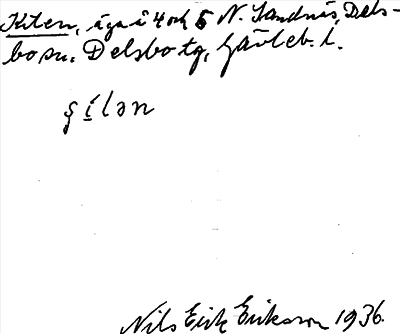 Kilen, äga å 4 och 5 N. Sandnäs, Dels-
bo sn. Delsbo tg, Gävleb. l.
ʂílən
Nils Erik Eriksson 1936.